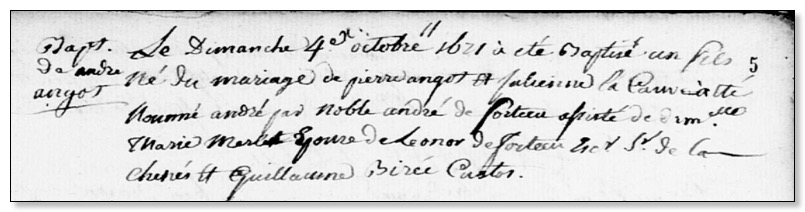 Bapt.
de andre
angot
Le Dimanche 4e octobre 1671 a eté Baptisé un fils
né du mariage de pierre angot et Julienne la
Nommé andré par Noble andré de assisté de dmlle
Marie Merlet Epouse de Leonor de Escr Sr. de la
et Guillaume Birée Custos.
5